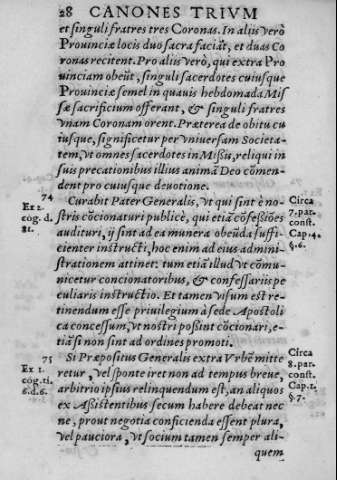 28 CANONES TRIVM
et singuli fratres tres Coronas. In aliis verò
Prouinciæ locis duo sacra faciāt, et duas Co
ronas recitent. Pro aliis verò, qui extra Pro
uinciam obeūt, singuli sacerdotes cuiusque
Prouinciæ semel in quauis hebdomada Mis
sæ sacrificium offerant, & singuli fratres
vnam Coronam orent. Præterea de obitu cu
iusque, significetur per vniuersam Societa-
tem, vt omnes sacerdotes in Missis, reliqui in
suis precationibus illius animā Deo cōmen-
dent pro cuiusque deuotione.
74
Ex 1.
cōg. d.
81.
Curabit Pater Generalis, vt qui sint è no-
stris cōcionaturi publicè, qui etiā cōfessiōes
audituri, ij sint ad ea munera obeūda suffi-
cienter instructi, hoc enim ad eius admini-
strationem attinet: tum etiā illud vt cōmu-
nicetur concionatoribus, & confessariis pe
culiaris instructio. Et tamen visum est re-
tinendum esse priuilegium à sede Apostoli
ca concessum, vt nostri possint cōcionari, e-
tiā si non sint ad ordines promoti.
Circa
7. par.
const.
Cap. 4.
§. 6.
75
Ex 1.
cōg. ti.
6. d. 6.
Si Præpositus Generalis extra Vrbē mitte
retur, vel sponte iret non ad tempus breue,
arbitrio ipsius relinquendum est, an aliquos
ex Assistentibus secum habere debeat nec
ne, prout negotia conficienda essent plura,
vel pauciora, vt socium tamen semper ali-
quem
Circa
8. par.
const.
Cap. 1.
§. 7.